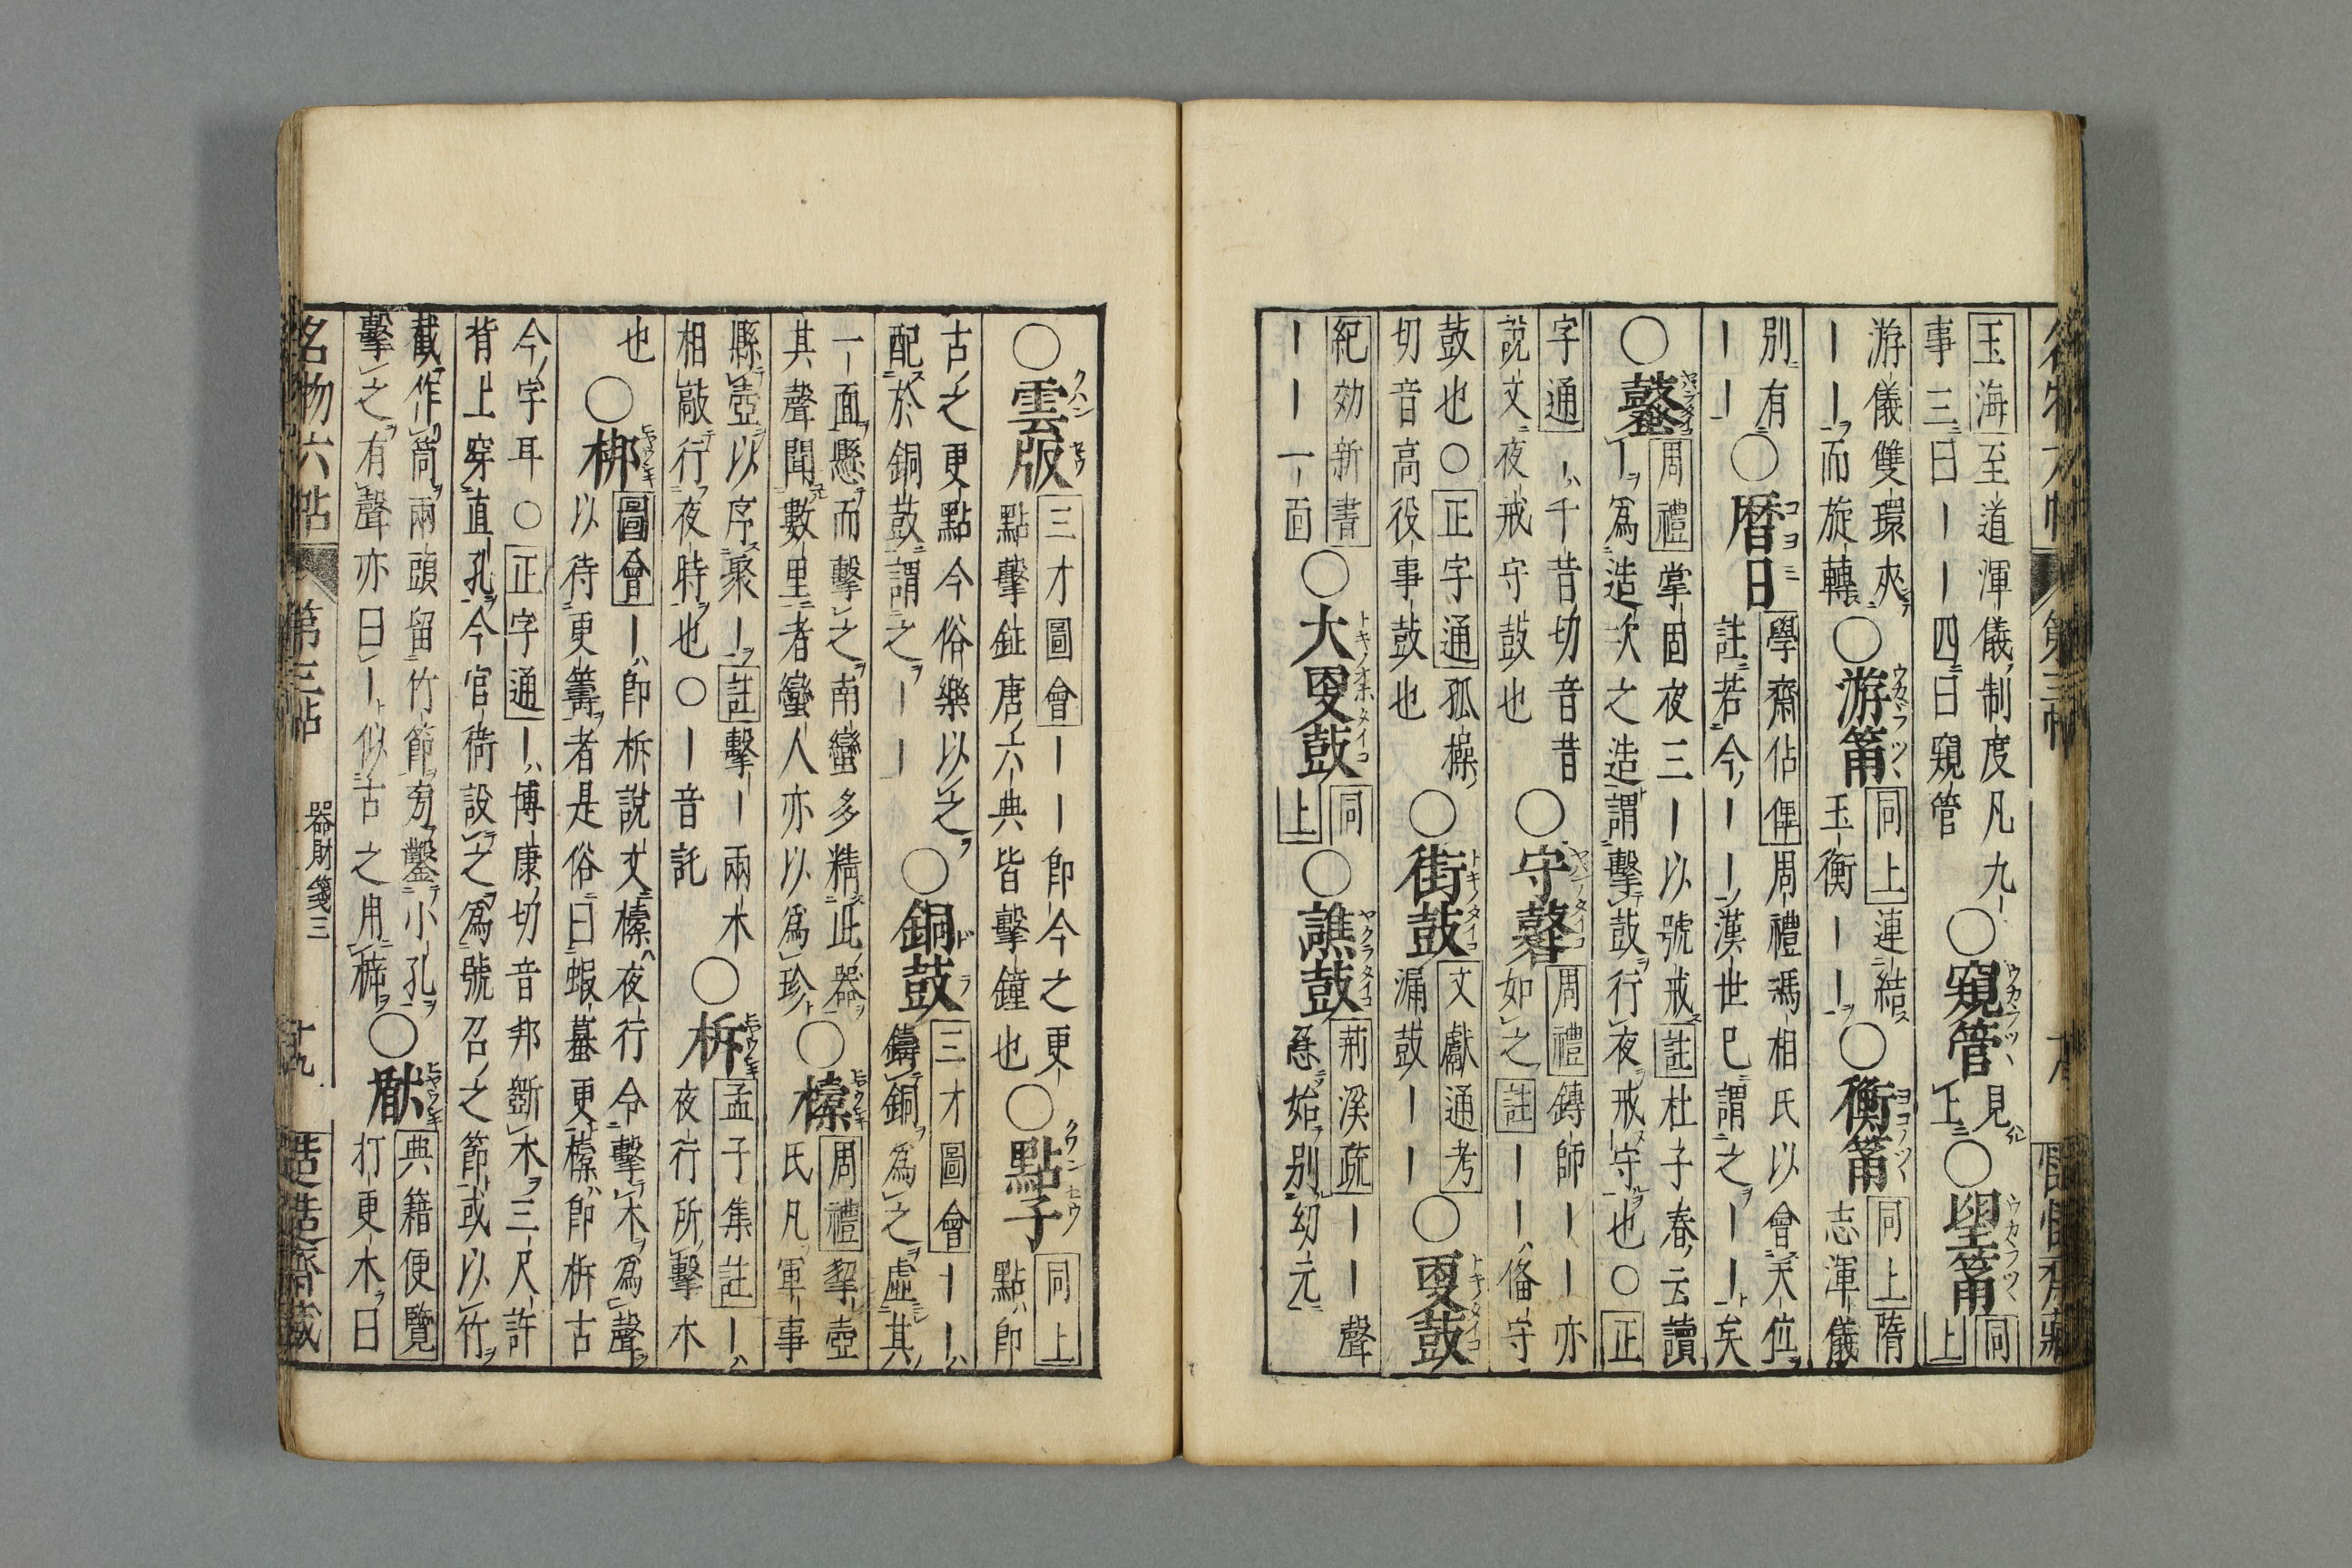 玉海至道渾儀ノ制度凡九
事三曰｜｜四曰窺管○窺管見上○望筩同上
游儀雙環夾
｜｜而旋轉○游筩同上連結玉衡｜｜○衡筩同上隋志渾儀
別有
｜｜○暦日學齋佔俾周禮馮相氏以會天位
註若今｜｜漢世已謂之｜｜矣
○鼜周禮掌固夜三｜以號戒註杜子春云讀
｜為造次之造謂擊鼓行夜戒守也○正
字通｜千昔切音昔
說文夜戒守鼓也○守鼜周禮鎛師｜｜亦
如之註｜｜備守
鼓也○正字通孤橾
切音高役事鼓也○街鼓文獻通考漏鼓｜｜○更鼓
紀効新書
｜｜一面○大更鼓同上○譙鼓荊溪疏｜｜聲
急始別幼元
○雲版三才圖會｜｜即今之更
點擊鉦唐六典皆擊鐘也○點子同上點即
古之更點今俗樂以之
配於銅鼓謂之｜｜○銅鼓三才圖會｜｜
鑄銅為之虛其
一面懸而擊之南蠻多精此器
其聲聞數里者蠻人亦以為珍○㯓周禮挈壺
氏凡軍事
縣壺以序聚｜註擊｜兩木
相敲行夜時也○｜音託○柝孟子集註｜
夜行所擊木
也○梆圖會｜即柝說文㯓夜行令擊木為聲
以待更籌者是俗曰蝦蟇更㯓即柝古
今字耳○正字通｜博康切音邦斲木三尺許
背上穿直孔今官衙設之為號召之節或以竹
截作筒兩頭留竹節旁鑿小孔
擊之有聲亦曰｜似古之用
典籍便覽
打更木曰
名物六帖 第三帖 器財箋三 十九